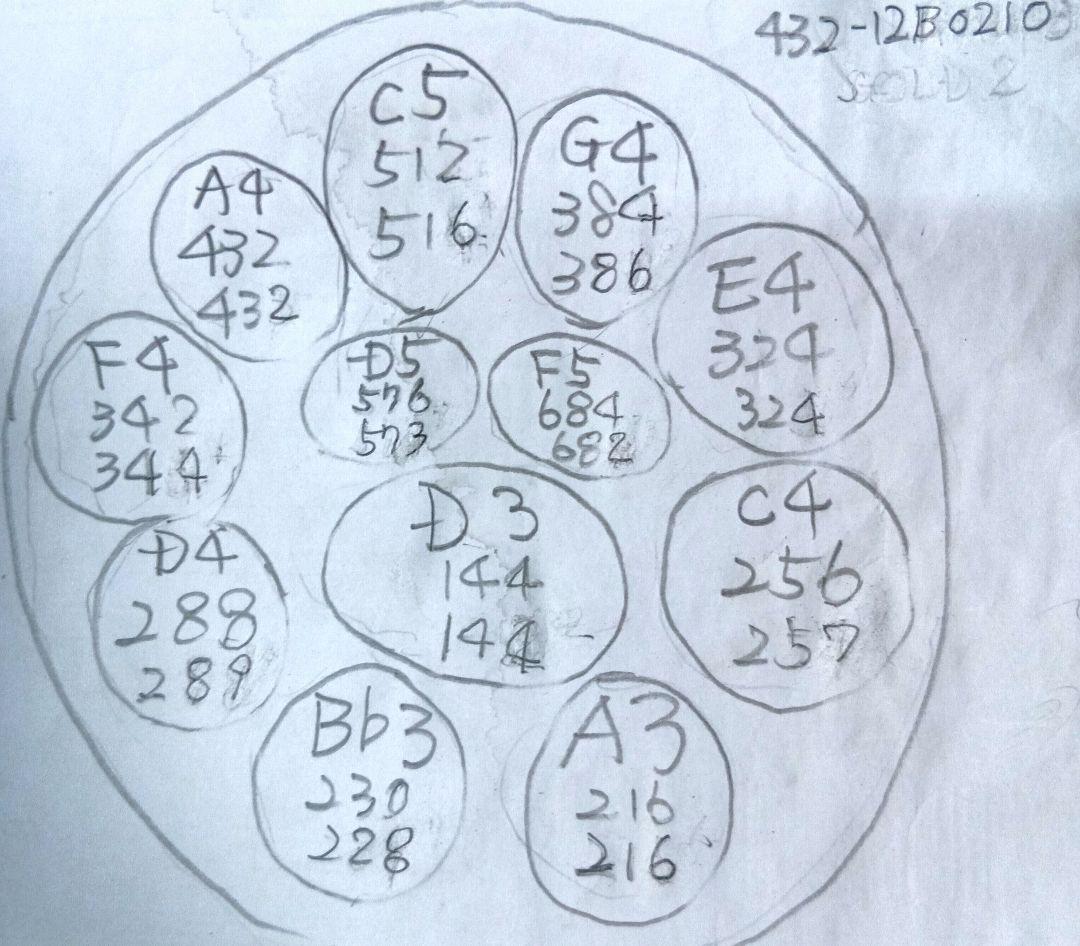 432-12B0210
SOLD 2
C5
512
516
G4
384
386
A4
432
432
E4
324
324
F4
342
344
D5
576
573
F5
684
682
D3
144
144
C4
256
257
D4
288
289
Bb3
230
228
A3
216
216